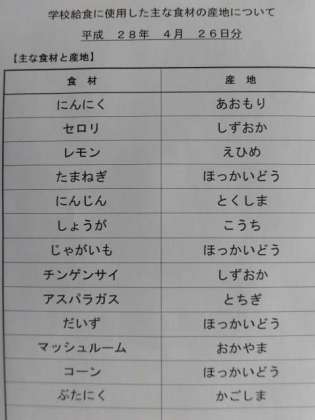 学校給食に使用した主な食材の産地について
平成 28年 4月 26日分
【主な食材と産地】
食 材 産 地
にんにく あおもり
セロリ しずおか
レモン えひめ
たまねぎ ほっかいどう
にんじん とくしま
しょうが こうち
じゃがいも ほっかいどう
チンゲンサイ しずおか
アスパラガス とちぎ
だいず ほっかいどう
マッシュルーム おかやま
コーン ほっかいどう
ぶたにく かごしま